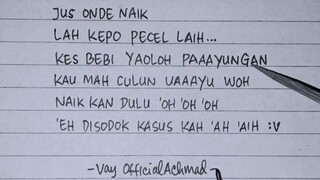 JUS ONDE NAIK
LAH KEPO PECEL LAIH...
KES BEBI YAOLOH PAAAYUNGAN
KAU MAH CULUN UAAAYU WOH
NAIK KAN DULU 'OH 'OH 'OH
'EH DISODOK KASUS KAH 'AH 'AIH :V
-Vay OfficialAchmad-